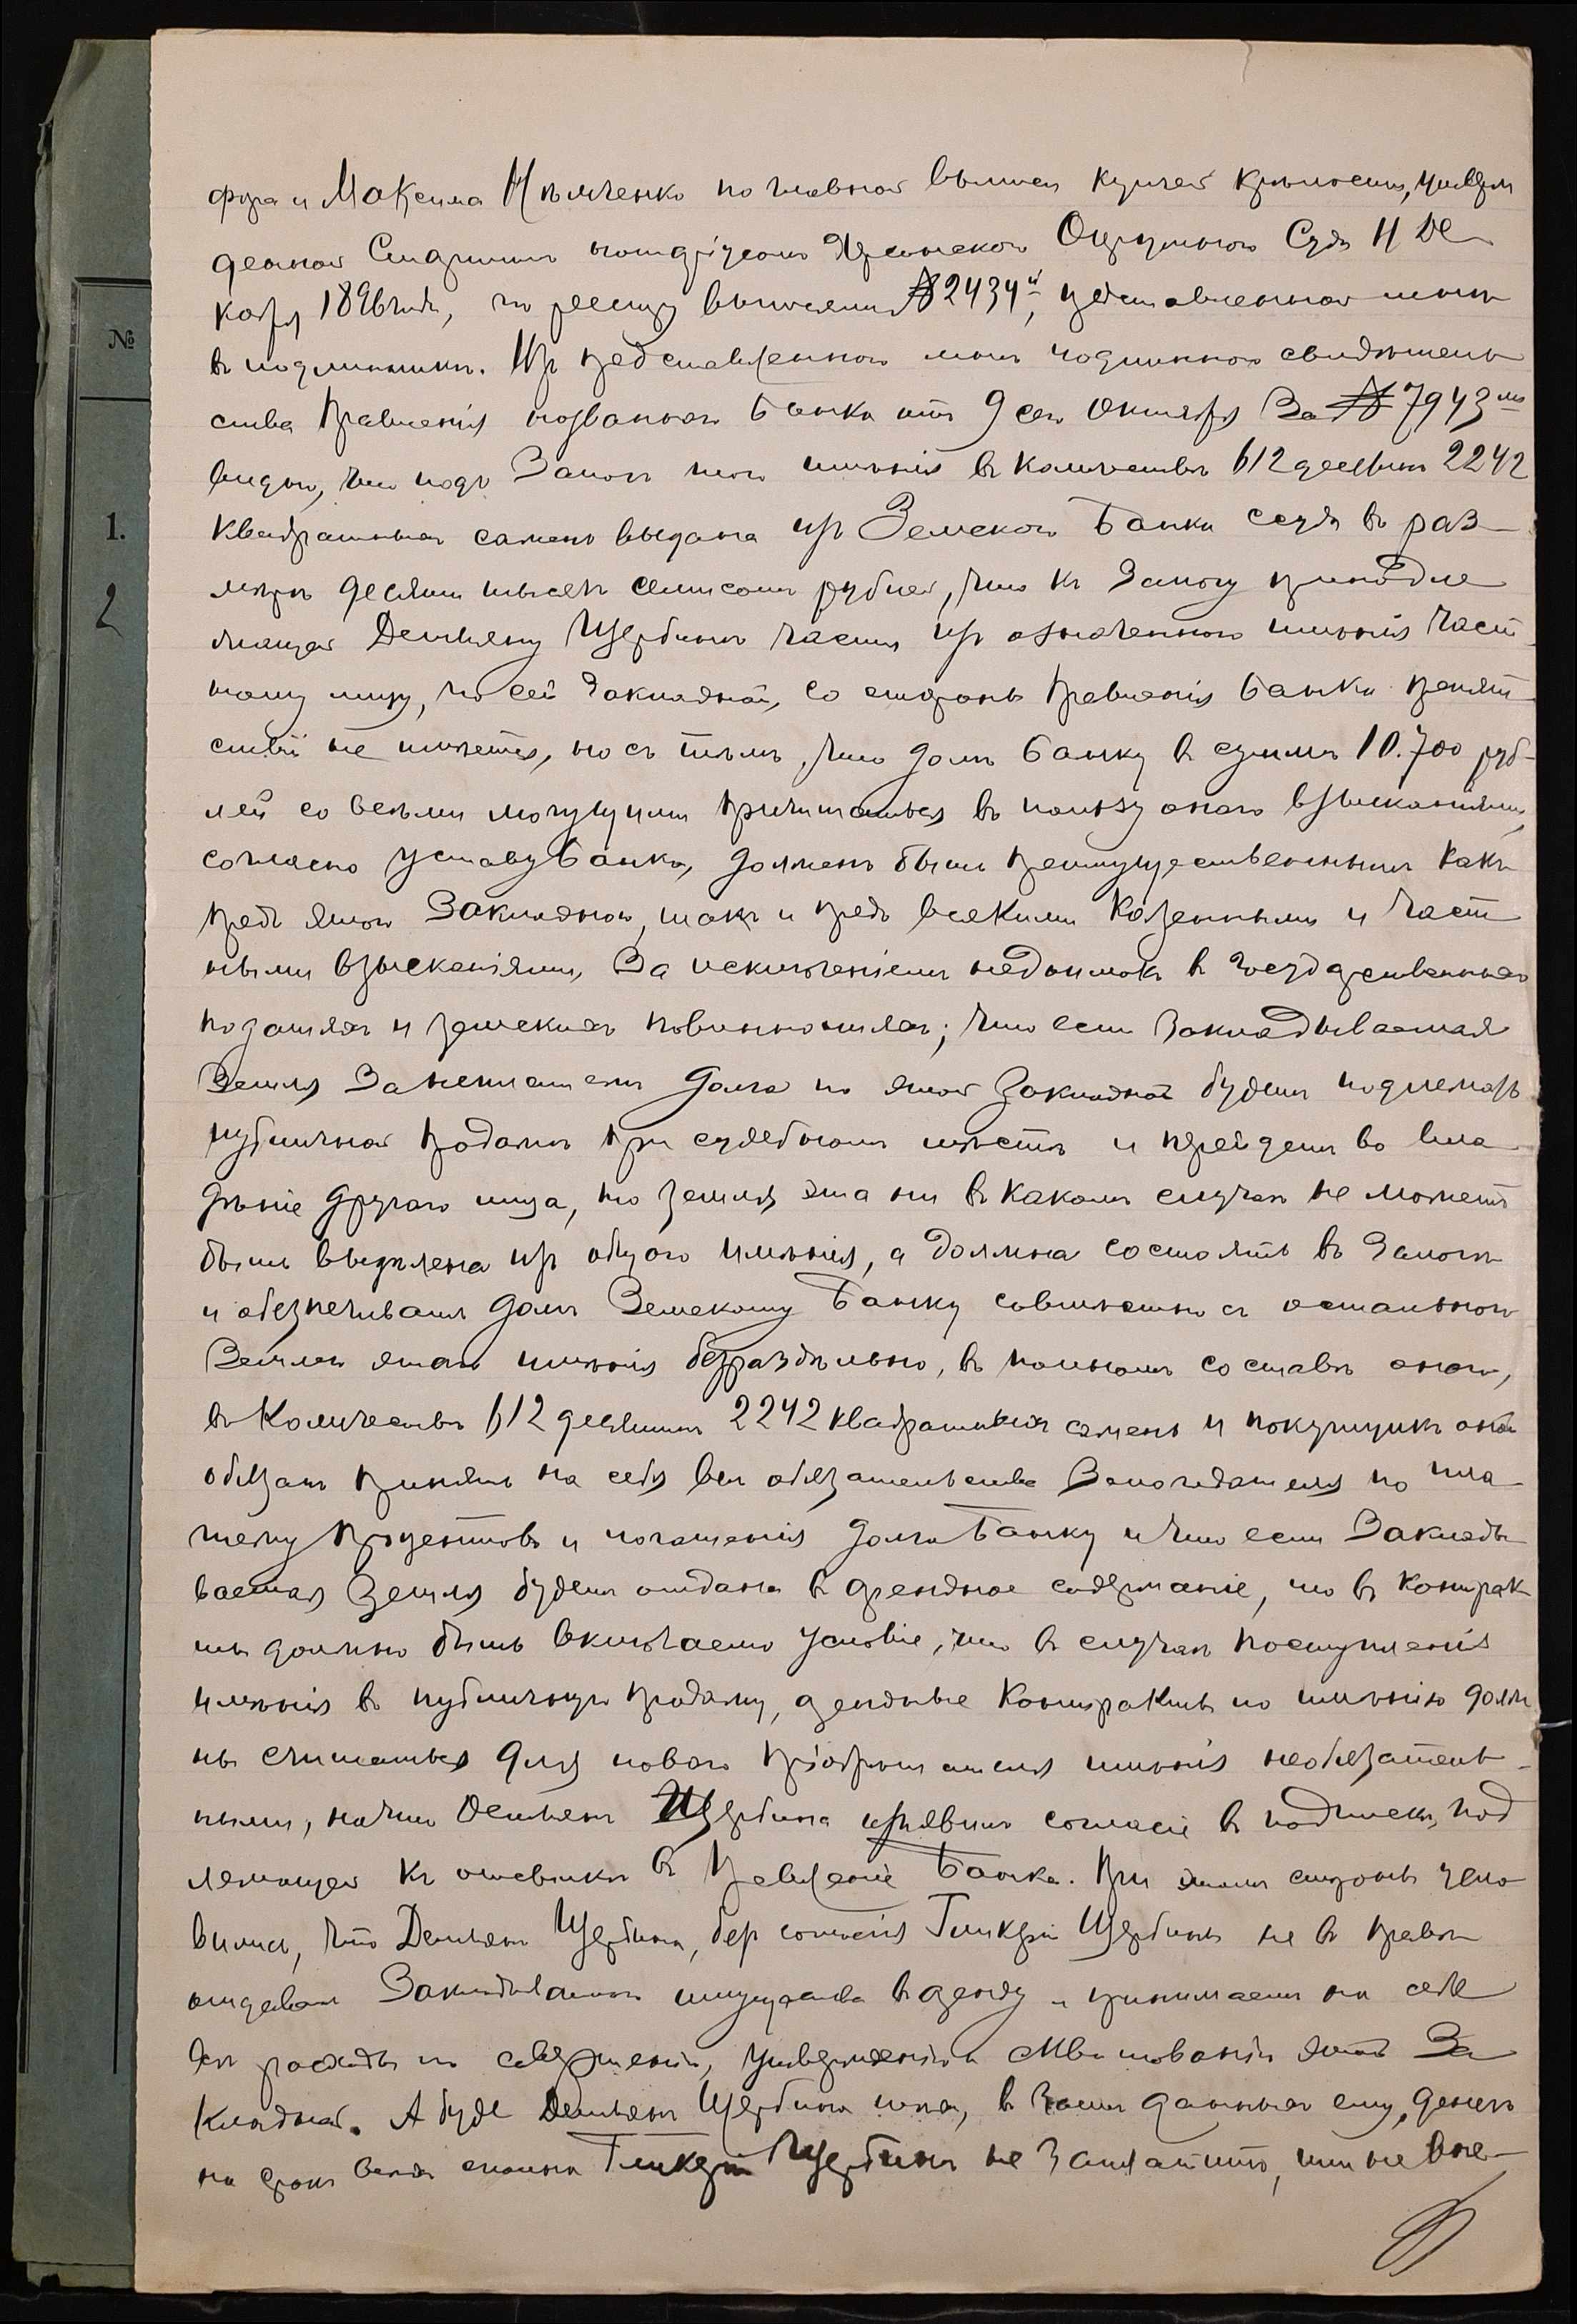 фора и Максима Нѣмченко по главной выписи купчей крѣпости, утверж
денной Старшимъ нотаріусомъ Херсонскаго Окружнаго Суда 11 Де
кабря 1896 года, по реестру выписями № 2434й, представленной мнѣ
въ подлинникѣ. Изъ представленнаго мнѣ подлиннаго свидѣтель
ства Правленія названнаго Банка отъ 9 сего Октября за № 7943мъ
видно, что подъ залогъ того имѣнія въ количествѣ 612 десятинъ 2242
квадратныхъ саженъ выдана изъ Земскаго Банка ссуда въ раз-
мѣрѣ десяти тысячъ семисотъ рублей, что къ залогу принадле
жащей Демьяну Щербинѣ части изъ означеннаго имѣнія част
ному лицу, по сей закладной, со стороны Правленія Банка препят
ствій не имѣется, но съ тѣмъ, что долгъ Банку въ суммѣ 10.700 руб-
лей со всѣми могущими причитаться въ пользу онаго взысканіями,
согласно уставу Банка, долженъ быть преимущественнымъ какъ
предъ этой закладной, такъ и предъ всякими казенными и част
ными взысканіями, за исключеніемъ недоимокъ въ государственныхъ
податяхъ и земскихъ повинностяхъ; что если закладываемая
земля за неплатежъ долга по этой закладной будетъ подлежать
публичной продажѣ при судебномъ мѣстѣ и перейдетъ во вла
дѣніе другого лица, то земля эта ни въ какомъ случаѣ не можетъ
быть выдѣлена изъ общаго имѣнія, а должна состоять въ залогѣ
и обезпечивать долгъ Земскому Банку совмѣстно съ остальною
землею этого имѣнія безраздѣльно, въ полномъ составѣ онаго,
въ количествѣ 612 десятинъ 2242 квадратныхъ саженъ и покупщикъ оной
обязанъ принять на себя всѣ обязательства залогодателя по пла
тежу процентовъ и погашенія долга Банку и что если заклады
ваемая земля будетъ отдана въ арендное содержаніе, то въ контрак
тѣ должно быть включаемо условіе, что въ случаѣ поступленія
имѣнія въ публичную продажу, арендные контракты по имѣнію долж
ны считаться для новаго пріобрѣтателя имѣнія необязатель-
ными, на что Демьянъ Щербина изъявилъ согласіе въ подпискѣ, под
лежащей къ отсылкѣ въ Правленіе Банка. При этомъ стороны усло
вились, что Демьянъ Щербина, безъ согласія Гликеріи Щербины не въ правѣ
отдавать закладываемаго имущества въ аренду и принимаетъ на себя
всѣ расходы по совершенію, утвержденію и ликвидованію этой За
кладной. А буде Демьянъ Щербина, въ данныхъ ему, денегъ
на срокъ всѣхъ сполна Гликеріи Щербинѣ не заплатитъ, или не вне-